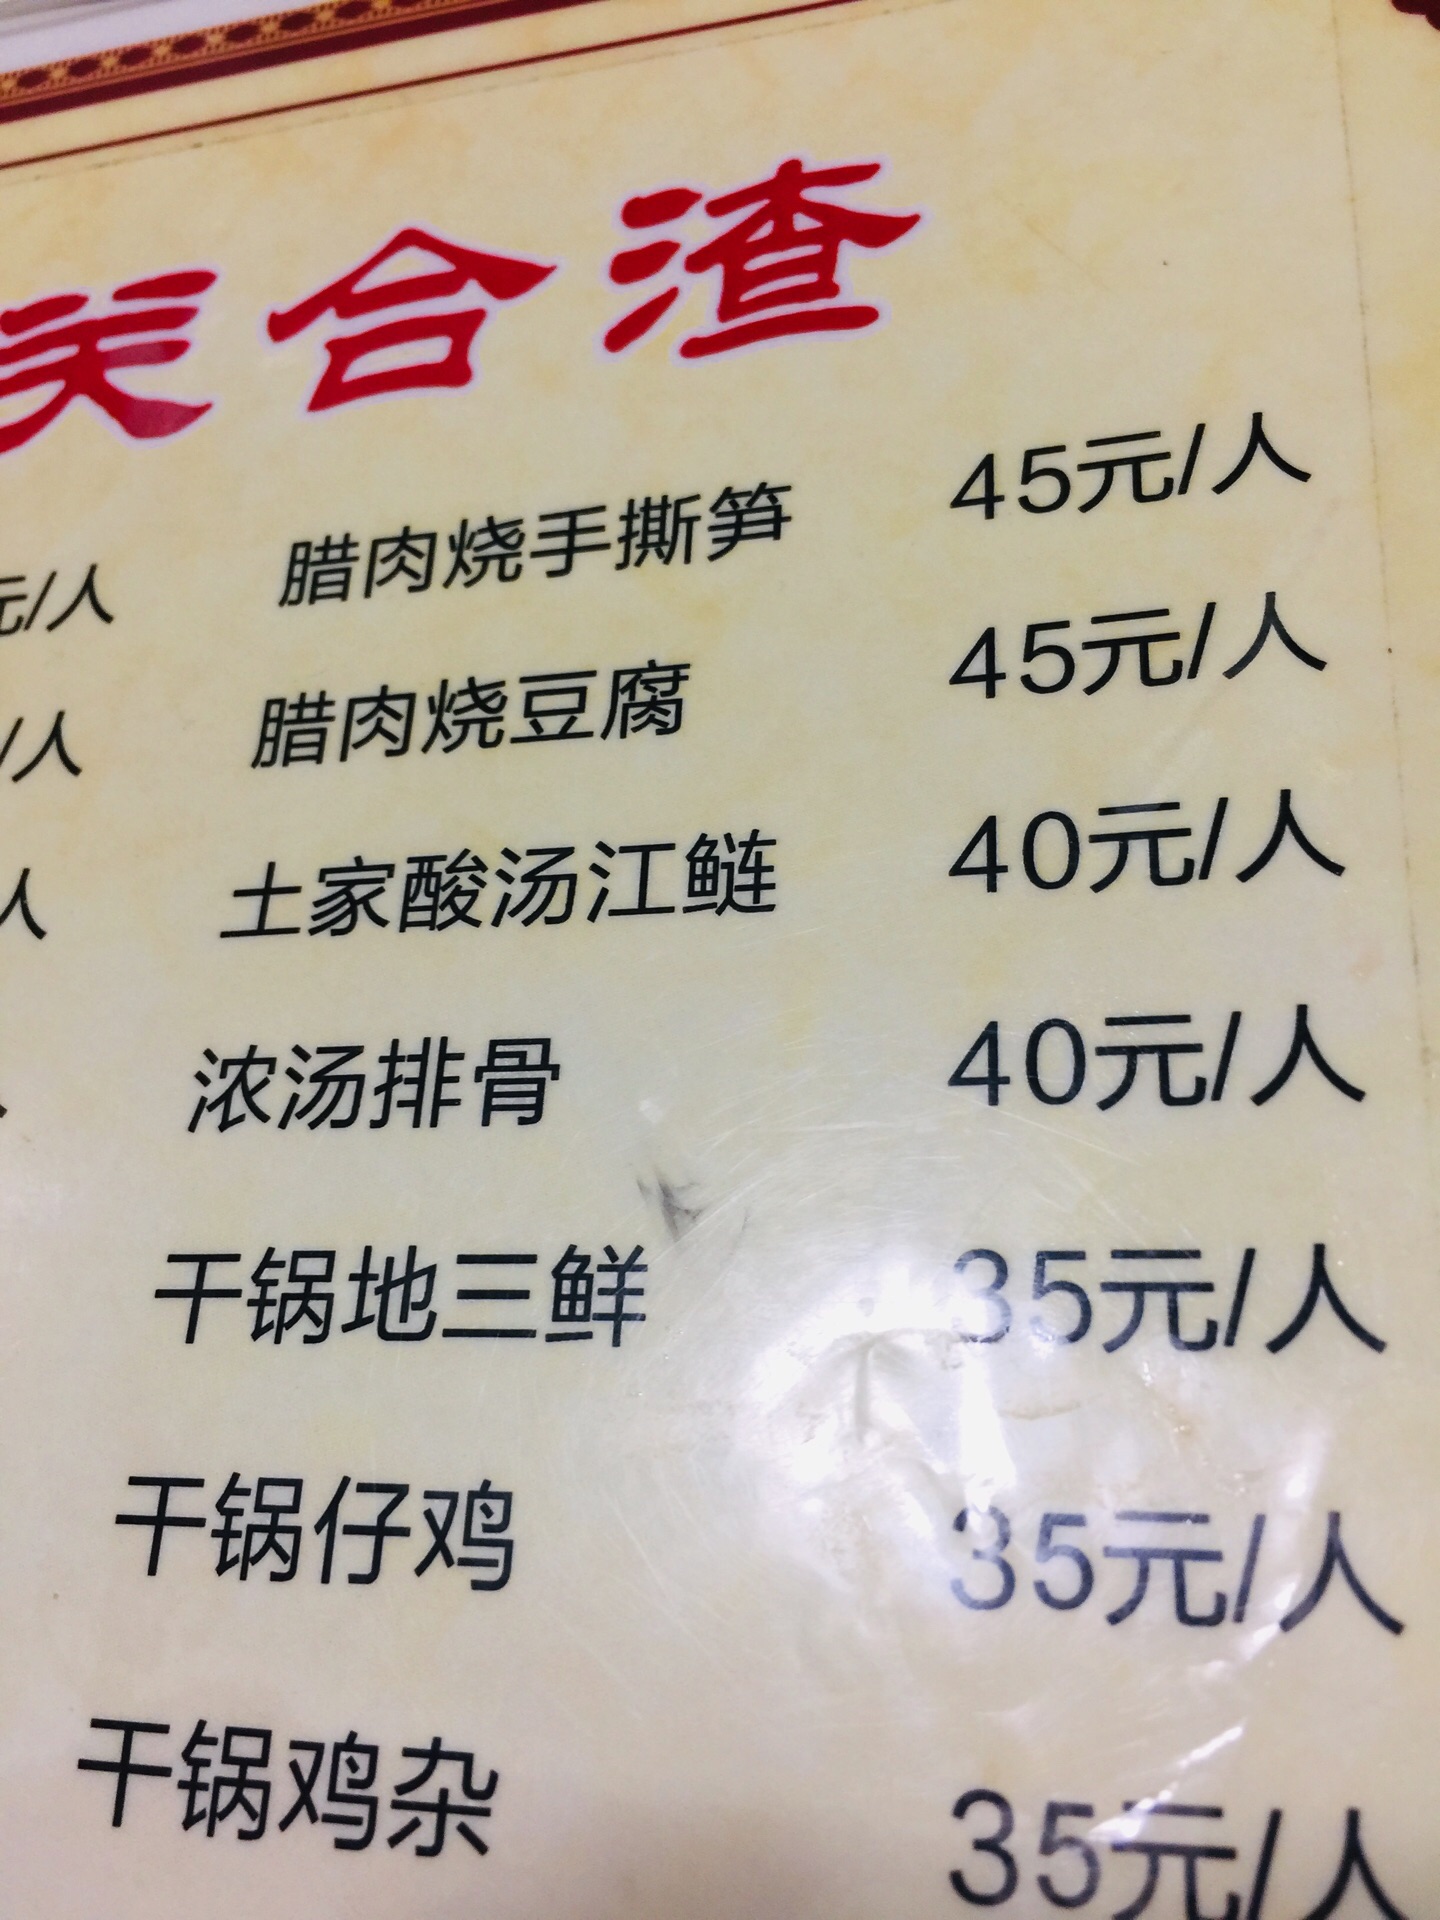 关合渣
元/人
腊肉烧手撕笋 45元/人
/人
腊肉烧豆腐 45元/人
人
土家酸汤江鲢 40元/人
浓汤排骨 40元/人
干锅地三鲜 35元/人
干锅仔鸡 35元/人
干锅鸡杂 35元/人